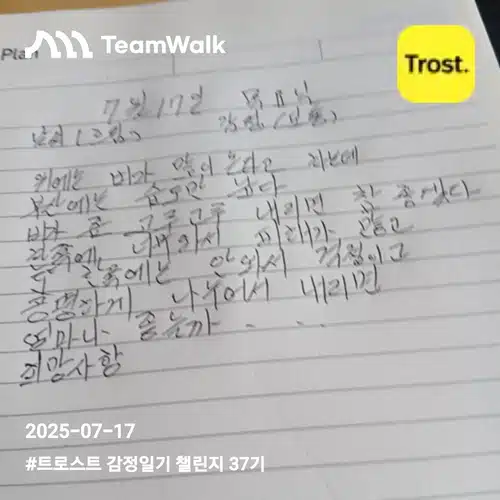 TeamWalk
Plan
Trost.
7월 17일 목요일
날씨 (흐림) 감정 (보통)
위에는 비가 많이 온다고 하는데
부산에는 습도만 높다
비가 좀 골고루 내리면 참 좋겠다
한쪽에는 너무와서 피해가
또 한쪽에는 안와서 걱정이고
공평하게 나누어서 내리면
얼마나 좋을까 . . .
희망사항
2025-07-17
#트로스트 감정일기 챌린지 37기